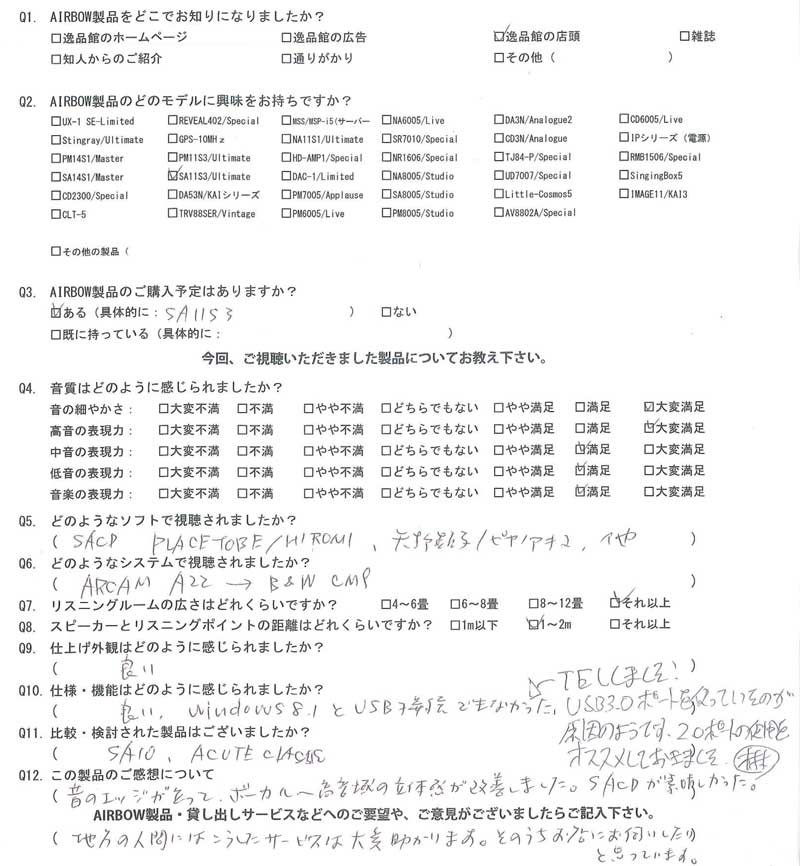 Q1. AIRBOW製品をどこでお知りになりましたか？
□逸品館のホームページ □逸品館の広告 ☑逸品館の店頭 □雑誌
□知人からのご紹介 □通りがかり □その他（ ）
Q2. AIRBOW製品のどのモデルに興味をお持ちですか？
□UX-1 SE-Limited □REVEAL402/Special □MSS/MSP-i5(サーバー □NA6005/Live □DA3N/Analogue2 □CD6005/Live
□Stingray/Ultimate □GPS-10MHz □NA11S1/Ultimate □SR7010/Special □CD3N/Analogue □IPシリーズ（電源）
□PM14S1/Master □PM11S3/Ultimate □HD-AMP1/Special □NR1606/Special □TJ84-P/Special □RMB1506/Special
□SA14S1/Master ☑SA11S3/Ultimate □DAC-1/Limited □NA8005/Studio □UD7007/Special □SingingBox5
□CD2300/Special □DA53N/KAIシリーズ □PM7005/Applause □SA8005/Studio □Little-Cosmos5 □IMAGE11/KAI3
□CLT-5 □TRV88SER/Vintage □PM6005/Live □PM8005/Studio □AV8802A/Special
□その他の製品（
Q3. AIRBOW製品のご購入予定はありますか？
☑ある（具体的に：SA11S3 ） □ない
□既に持っている（具体的に： ）
今回、ご視聴いただきました製品についてお教え下さい。
Q4. 音質はどのように感じられましたか？
音の細やかさ： □大変不満 □不満 □やや不満 □どちらでもない □やや満足 □満足 ☑大変満足
高音の表現力： □大変不満 □不満 □やや不満 □どちらでもない □やや満足 □満足 ☑大変満足
中音の表現力： □大変不満 □不満 □やや不満 □どちらでもない □やや満足 ☑満足 □大変満足
低音の表現力： □大変不満 □不満 □やや不満 □どちらでもない □やや満足 ☑満足 □大変満足
音楽の表現力： □大変不満 □不満 □やや不満 □どちらでもない □やや満足 ☑満足 □大変満足
Q5. どのようなソフトで視聴されましたか？
（ SACD PLACETOBE/HIROMI、 他 ）
Q6. どのようなシステムで視聴されましたか？
（ ARCAM A22 → B&W CMP ）
Q7. リスニングルームの広さはどれくらいですか？ □4～6畳 □6～8畳 □8～12畳 ☑それ以上
Q8. スピーカーとリスニングポイントの距離はどれくらいですか？ □1m以下 ☑1～2m □それ以上
Q9. 仕上げ外観はどのように感じられましたか？
（ 良い ）
Q10. 仕様・機能はどのように感じられましたか？
TELしました！
（ 良い、Windows8.1とUSB接続できなかった。
USB3.0ポートを使っているのが
原因のようです。2.0ポートの使用を
オススメしておきました。
Q11. 比較・検討された製品はございましたか？
（ SA10、ACUTE Classic
Q12. この製品のご感想について
（ 音のエッジが立って、ボーカル～高音域の立体感が改善しました。SACDが素晴しかった。
AIRBOW製品・貸し出しサービスなどへのご要望や、ご意見がございましたらご記入下さい。
（ 地方の人間にはこうしたサービスは大変助かります。そのうちお店にお伺いしたり
と思っています。